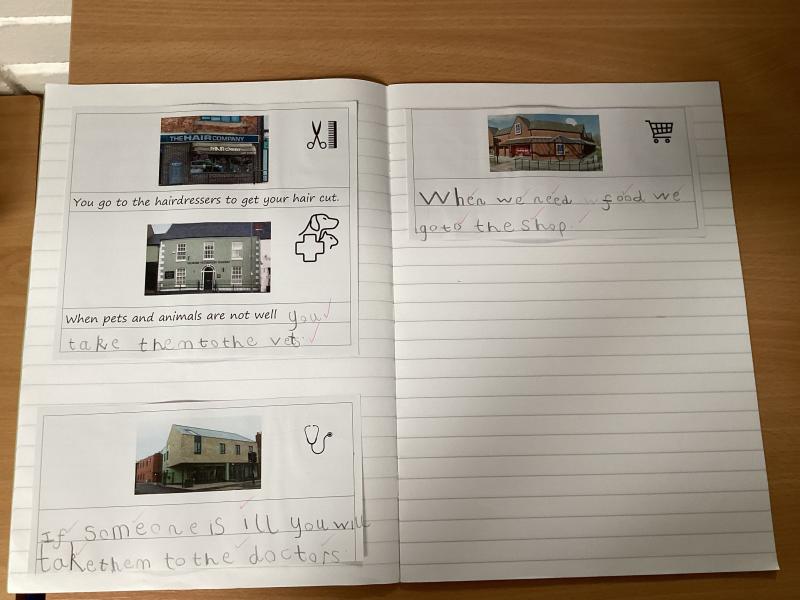 THE HAIR COMPANY
You go to the hairdressers to get your hair cut.
When pets and animals are not well you
take them to the vets.
If someone is ill you will
take them to the doctors.
When we need food we
go to the shop.